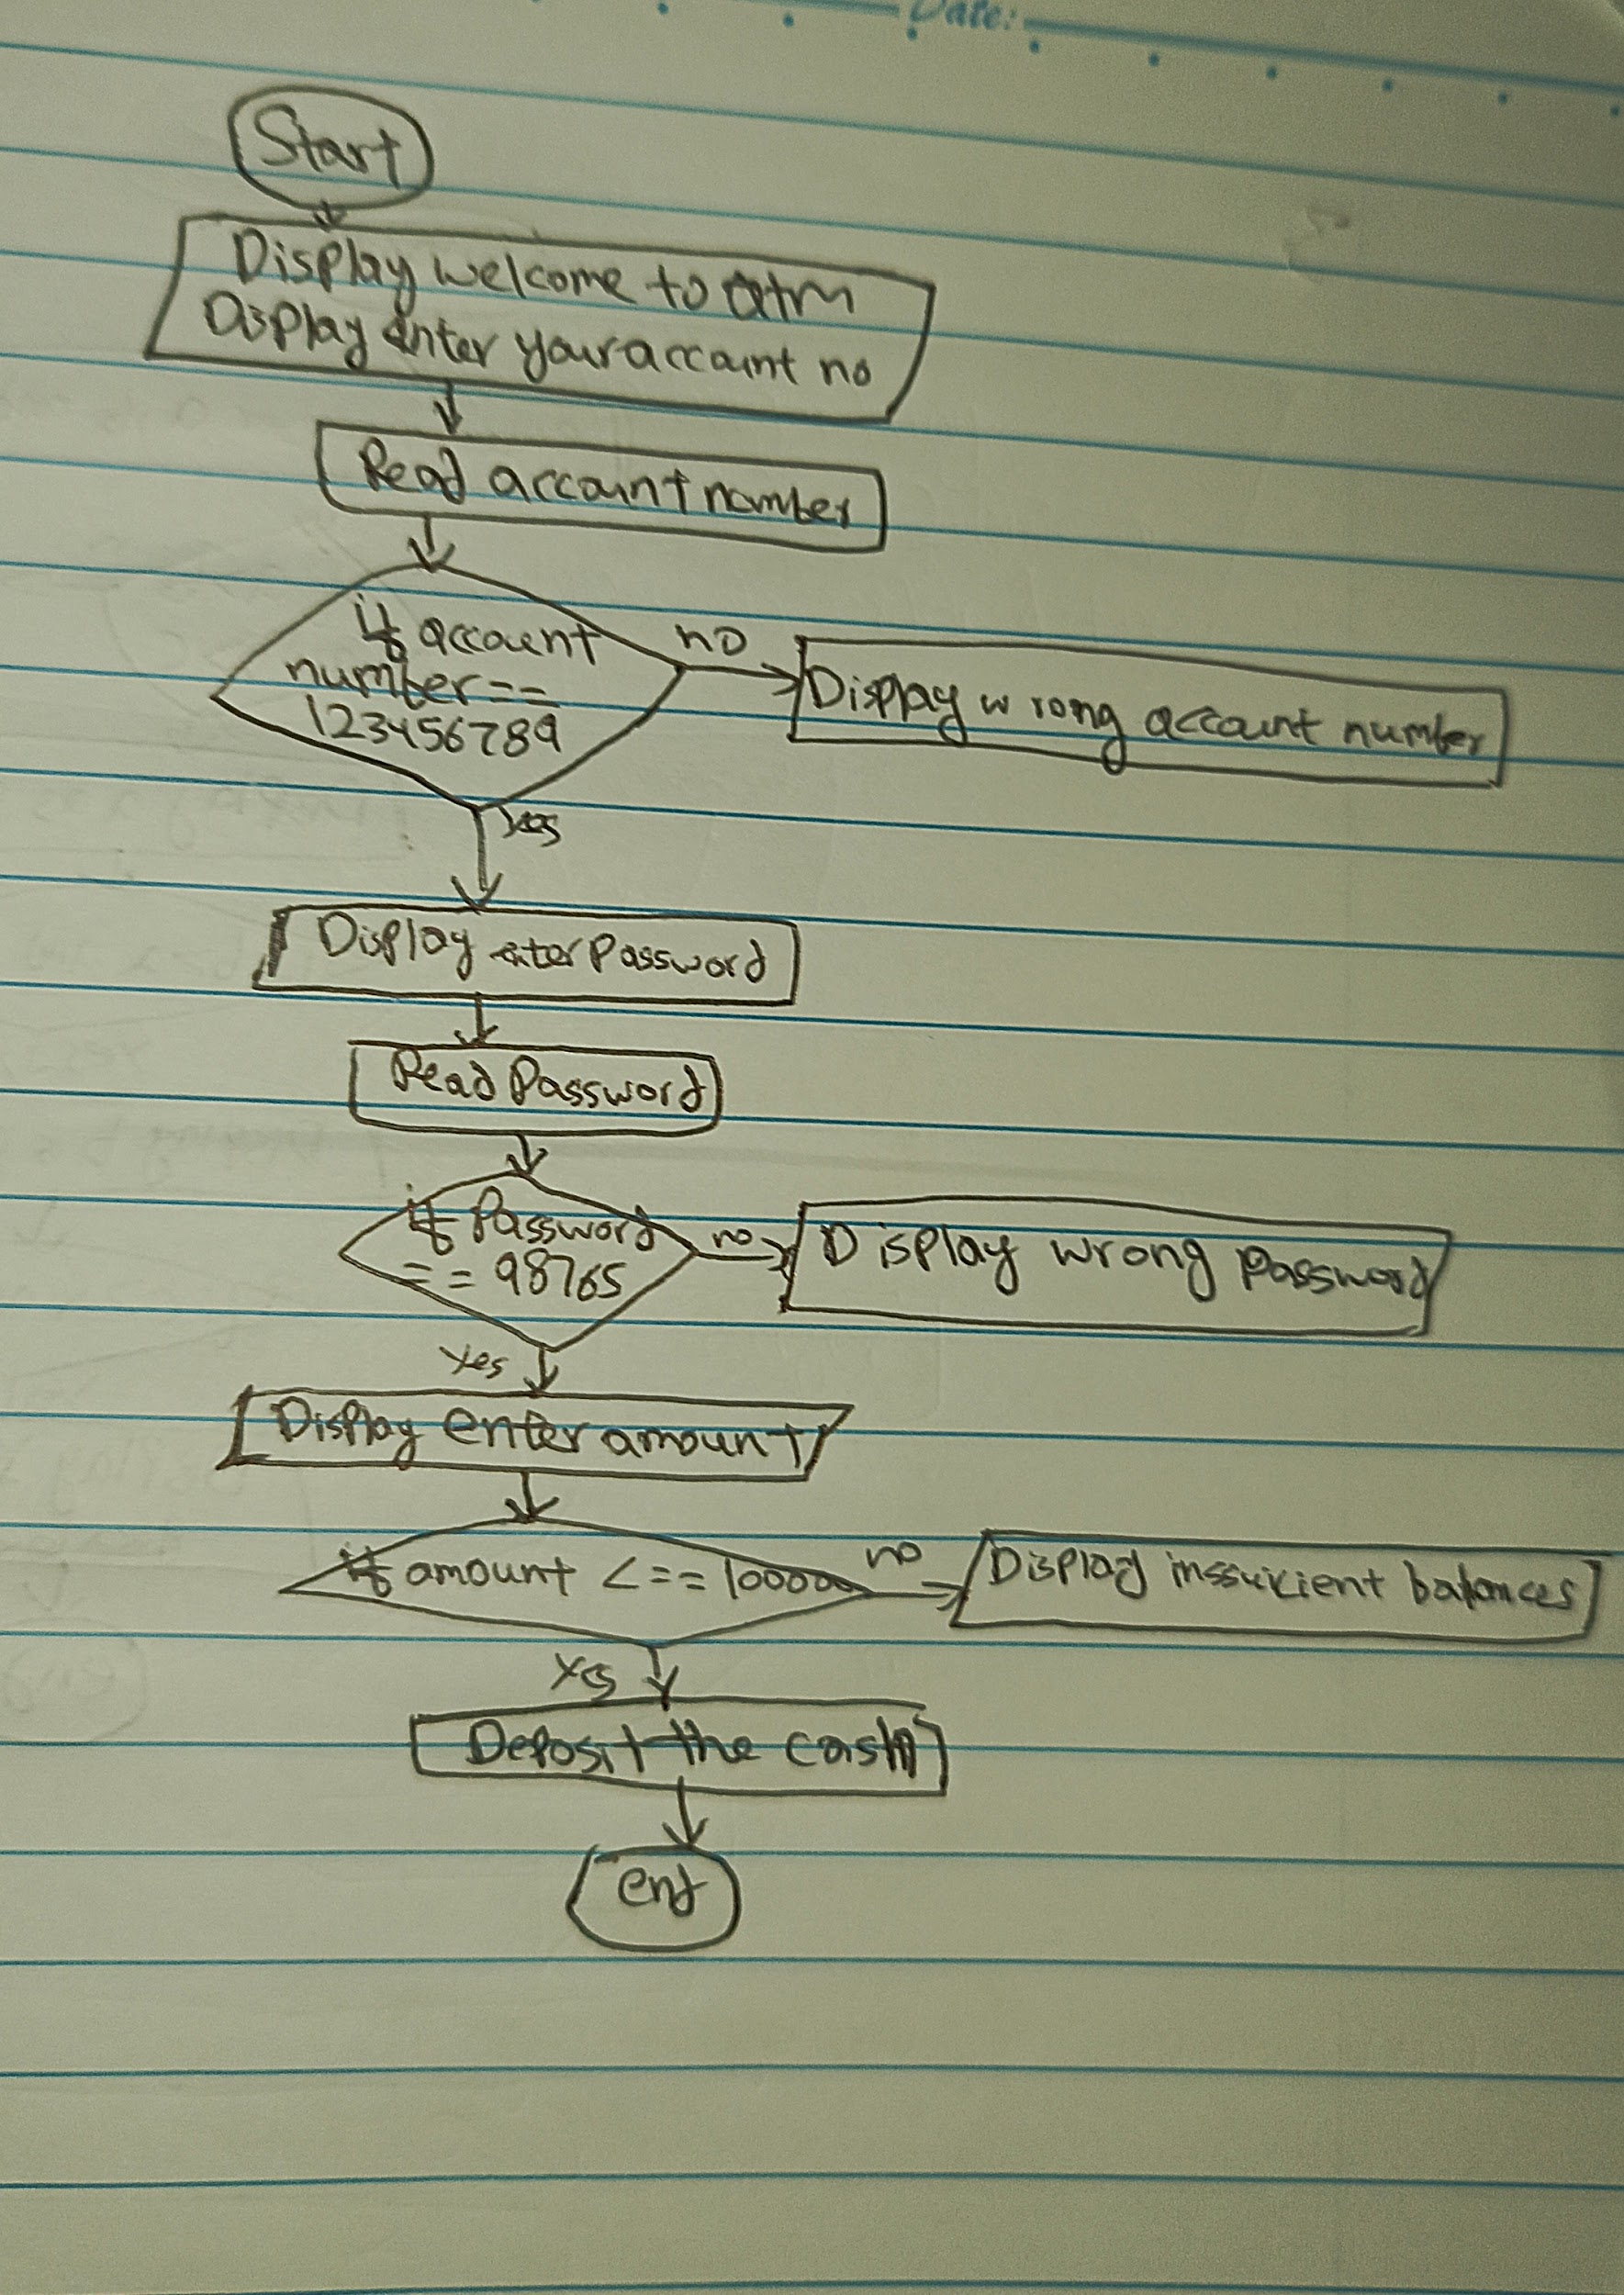 Date:
Start
Display welcome to atm
Display enter your account no
Read account number
if account
number==
123456789
no
Display wrong account number
Yes
Display enter Password
Read Password
if Password
== 98765
no
Display wrong Password
Yes
Display enter amount
if amount <== 10000
no
Display inssuicient balances
Yes
Deposit the cash
end